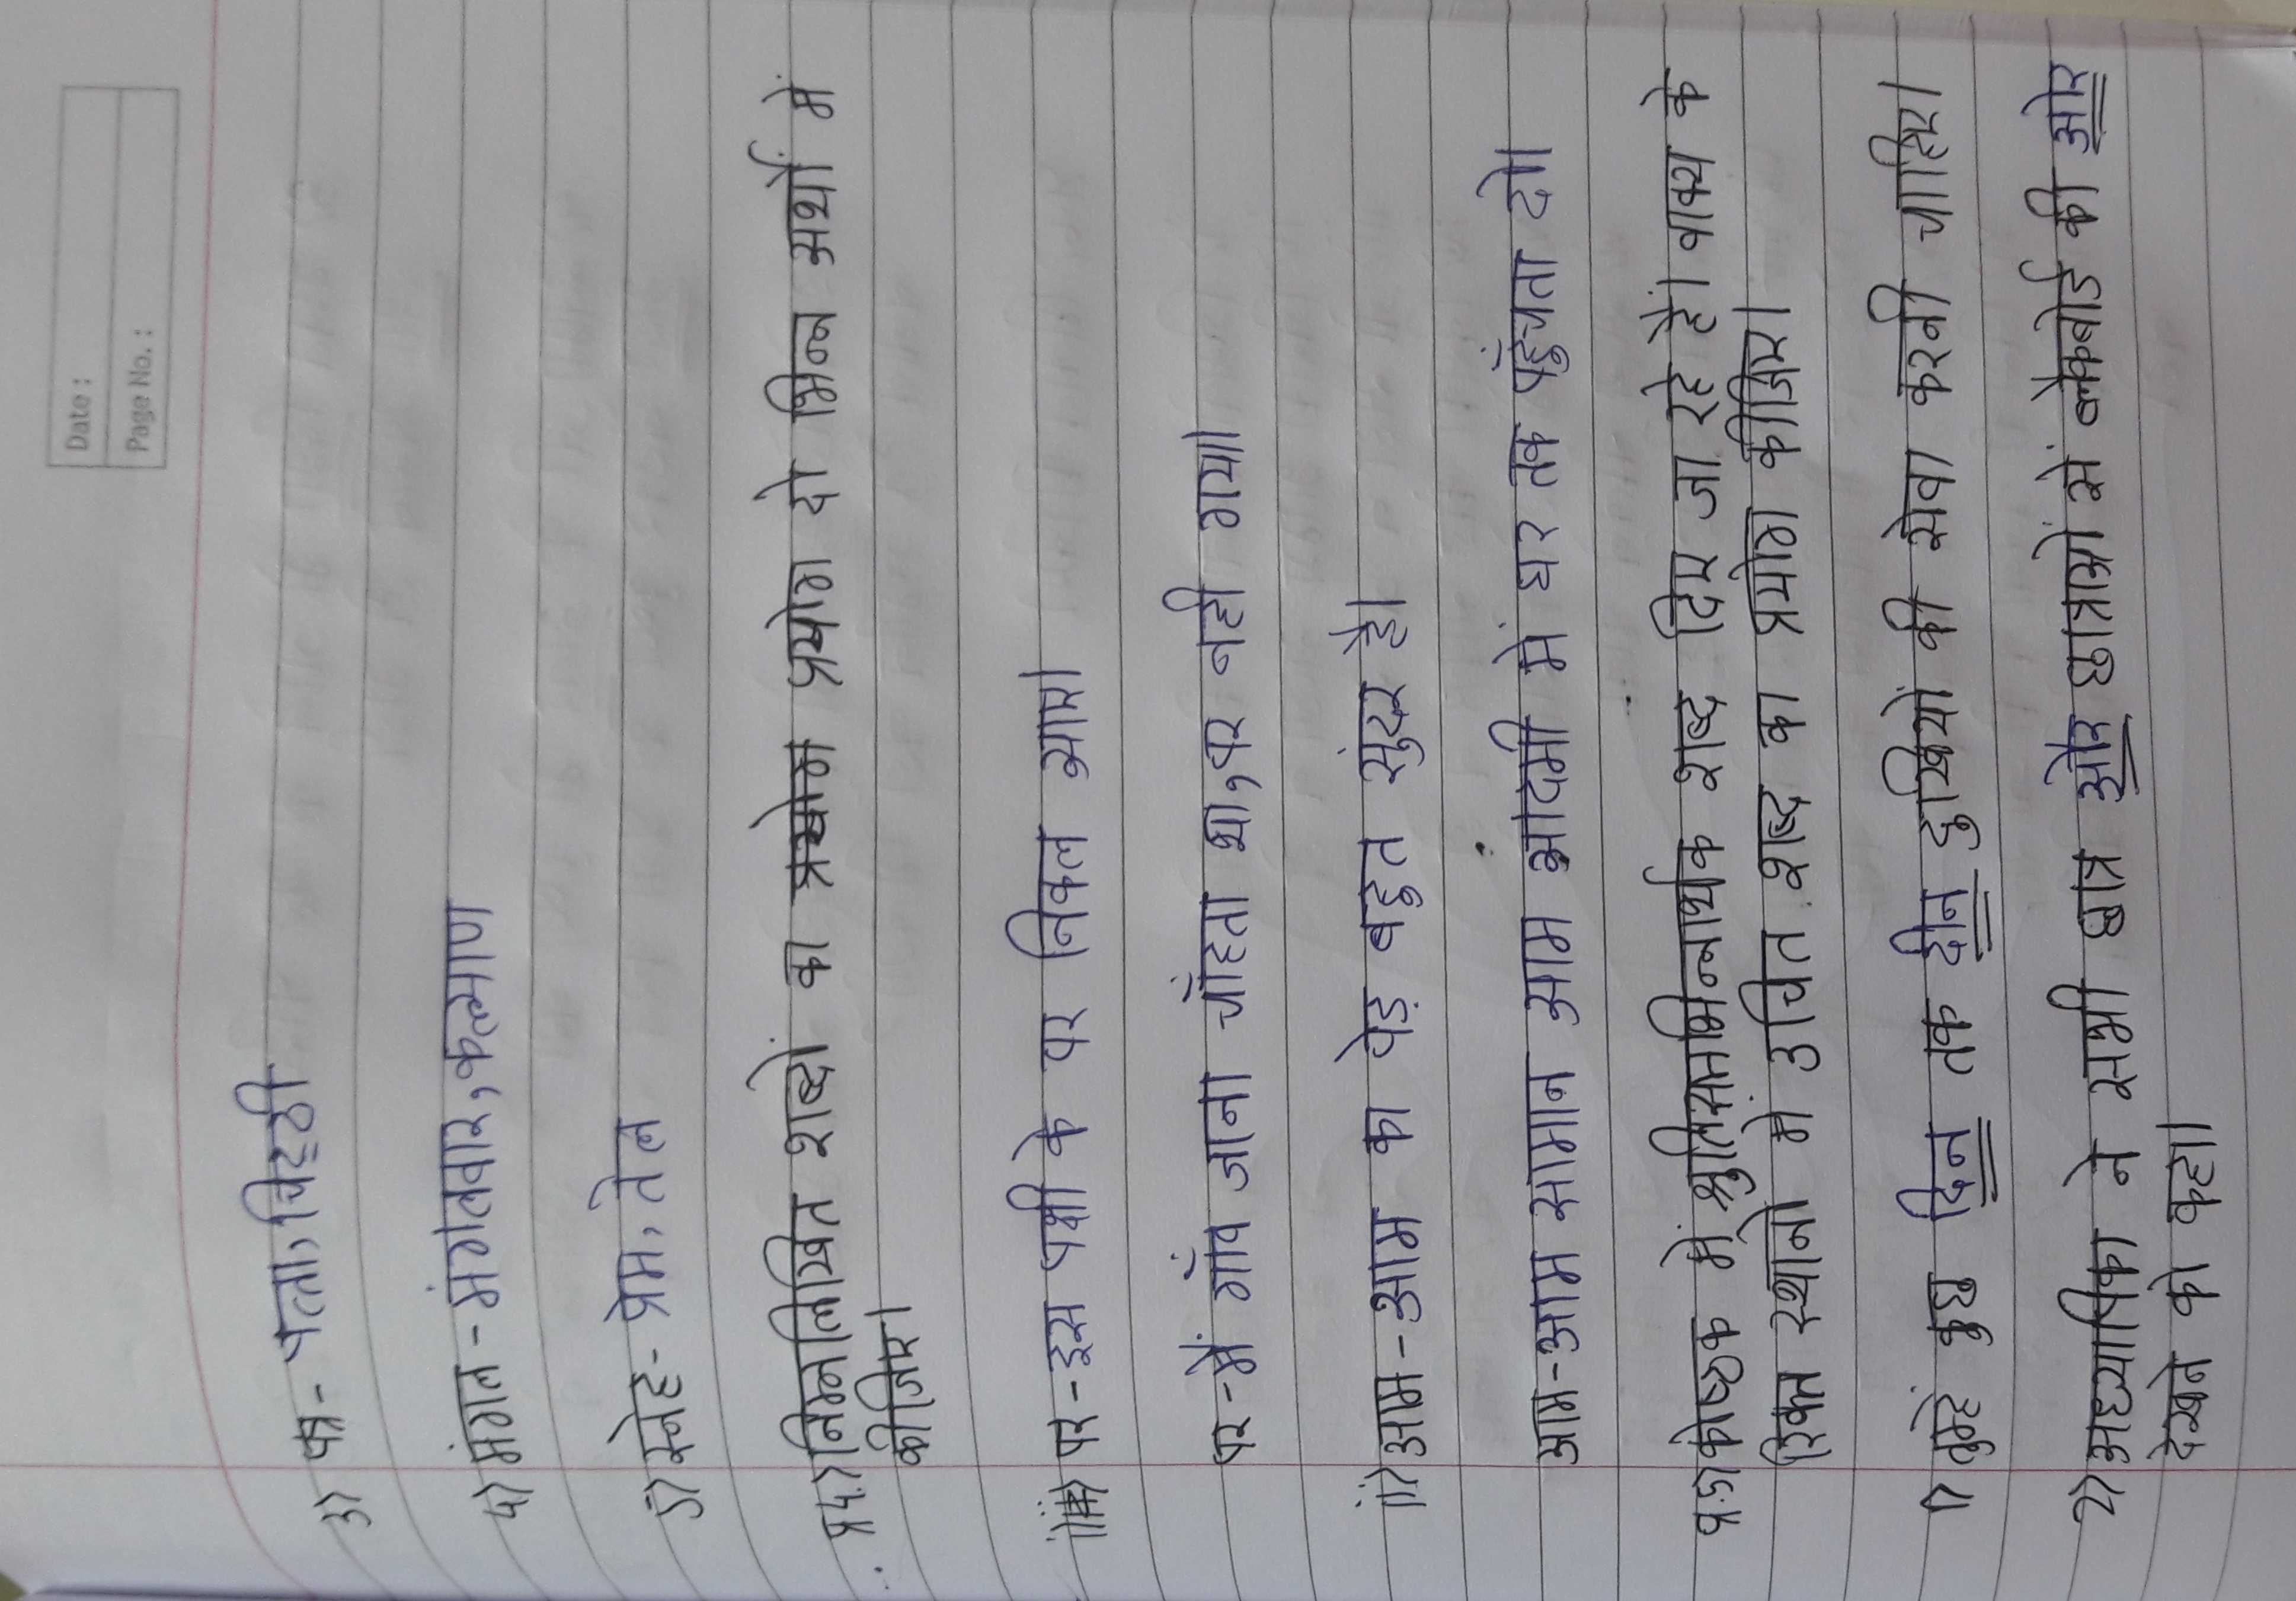 Date :
Page No. :
3) पत्र - पत्ता, चिट्ठी
4) मंगल - मंगलवार, कल्याण
5) स्नेह - प्रेम, तेल
प्र4.) निम्नलिखित शब्दों का प्रयोग दो भिन्न अर्थों में
कीजिए।
i) पर - इस पक्षी के पर निकल आए।
पर - मैं गाँव जाना चाँहता था, पर नही गया।
ii) आम - आम का पेड़ बहुत सुंदर है।
आम - आम सामान आम आदमी में घर तक पहुँचता दो।
प्र.5) कोष्ठक में श्रुतिसमभिन्नार्थक शब्द दिए जा रहे हैं। वाक्य के
रिक्त स्थानो में उचित शब्द का प्रयोग कीजिए।
1) तुम्हे कुछ दिन तक दीन दुखियों की सेवा करनी चाहिए।
2) अध्यापिका ने सभी छात्र और छात्राओं से ब्लेकबोर्ड की ओर
देखने को कहा।